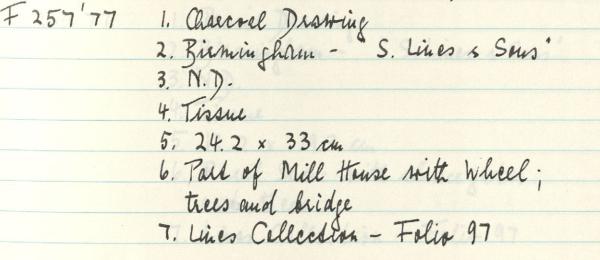 F 257'77 1. Charcoal Drawing
2. Birmingham - "S. Lines & Sons"
3. N.D.
4. Tissue
5. 24.2 x 33 cm
6. Part of Mill House with Wheel;
trees and bridge
7. Lines Collection - Folio 97